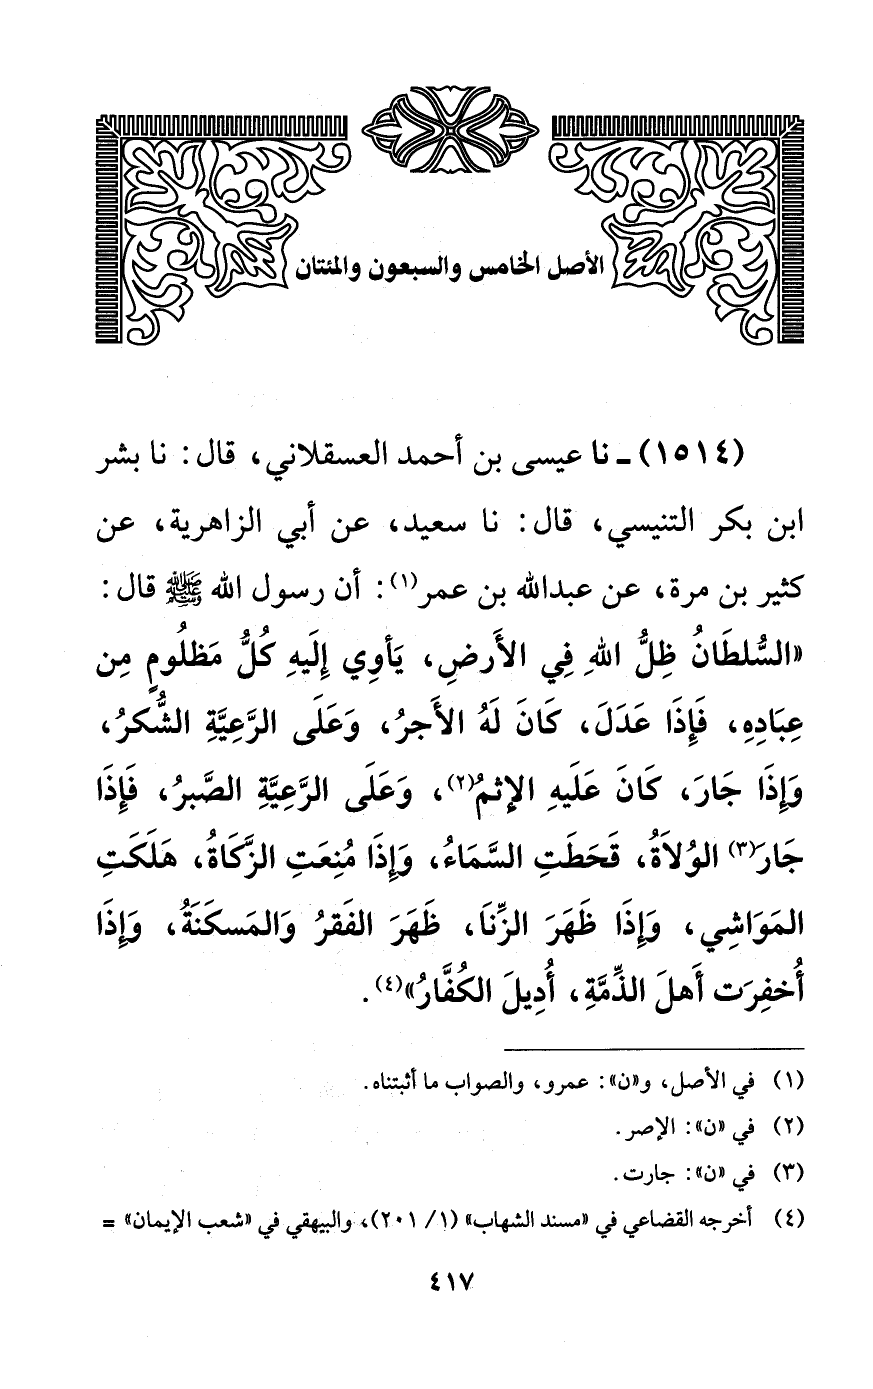 الأصل الخامس والسبعون والمئتان
(١٥١٤) ـ نا عيسى بن أحمد العسقلاني، قال: نا بشر
ابن بكر التنيسي، قال: نا سعيد، عن أبي الزاهرية، عن
كثير بن مرة، عن عبدالله بن عمر(١): أن رسول الله ﷺ قال:
«السُّلطَانُ ظِلُّ اللهِ فِي الأَرضِ، يَأوِي إِلَيهِ كُلُّ مَظلُومٍ مِن
عِبَادِهِ، فَإِذَا عَدَلَ، كَانَ لَهُ الأَجرُ، وَعَلَى الرَّعِيَّةِ الشُّكرُ،
وَإِذَا جَارَ، كَانَ عَلَيهِ الإِثمُ(٢)، وَعَلَى الرَّعِيَّةِ الصَّبرُ، فَإِذَا
جَارَ(٣) الوُلاَةُ، قَحَطَتِ السَّمَاءُ، وَإِذَا مُنِعَتِ الزَّكَاةُ، هَلَكَتِ
المَوَاشِي، وَإِذَا ظَهَرَ الزِّنَا، ظَهَرَ الفَقرُ وَالمَسكَنَةُ، وَإِذَا
أُخفِرَت أَهلَ الذِّمَّةِ، أُدِيلَ الكُفَّارُ»(٤).
(١) في الأصل، و«ن»: عمرو، والصواب ما أثبتناه.
(٢) في «ن»: الإصر.
(٣) في «ن»: جارت.
(٤) أخرجه القضاعي في «مسند الشهاب» (١/ ٢٠١)، والبيهقي في «شعب الإيمان» =
٤١٧